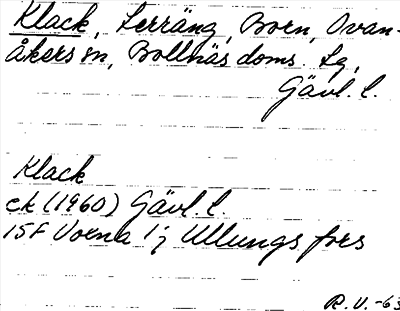 Klack, Terräng, Born, Ovan-
åkers sn, Bollnäs doms. Lg,
Gävl. l.
Klack
ek (1960) Gävl. l.
15F Voxna 1j Ullungsfors
R.V. -63